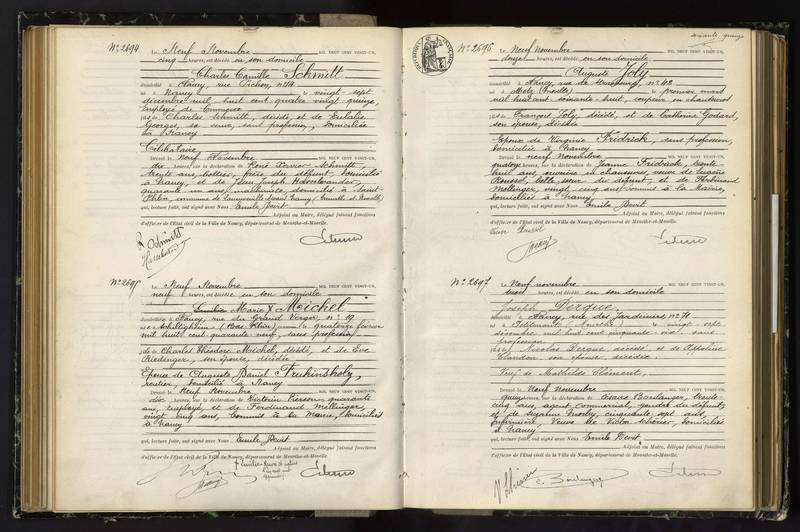 N° 2694
Le Neuf Novembre MIL NEUF CENT VINGT-UN,
cinq heures, est décédé en son domicile
Charles Camille Schmitt
domicilié à Nancy, rue Pichon, n° 14
né à Nancy le vingt sept
décembre mil huit cent quatre vingt quinze,
employé de Commerce
fils de Charles Schmitt, décédé, et de Eulalie
Georges, sa veuve, sans profession, domiciliée
à Nancy
Célibataire
Dressé le Neuf Novembre MIL NEUF CENT VINGT-UN,
dix heures, sur la déclaration de René Xavier Schmitt,
trente ans, bottier, frère du défunt, domicilié
à Nancy, et de Jean Joseph
quarante un ans, domicilié à Saint-
commune de
qui, lecture faite, ont signé avec Nous Emile Devit
Adjoint au Maire, délégué faisant fonctions
d'officier de l'État civil de la Ville de Nancy, département de Meurthe-et-Moselle.
R. Schmitt
N° 2695
Le Neuf Novembre MIL NEUF CENT VINGT-UN,
neuf heures, est décédée en son domicile
Marie X Michel
domiciliée à Nancy, rue du Grand Verger, n° 19
née à Schiltigheim (Bas-Rhin) le quatorze février
mil huit cent quarante neuf, sans profession
fille de Charles Théodore Michel, décédé, et de Eve
Riedinger, son épouse, décédée
Epouse de Auguste Daniel
rentier, domicilié à Nancy
Dressé le Neuf Novembre MIL NEUF CENT VINGT-UN,
dix heures, sur la déclaration de Victorin Pierson, quarante
ans, employé, et de Ferdinand Mellinger,
vingt cinq ans, commis à la Mairie, domiciliés
à Nancy
qui, lecture faite, ont signé avec Nous Emile Devit
Adjoint au Maire, délégué faisant fonctions
d'officier de l'État civil de la Ville de Nancy, département de Meurthe-et-Moselle.
soixante quinze
N° 2696
Le Neuf novembre MIL NEUF CENT VINGT-UN,
douze heures, est décédé en son domicile
Auguste Joly
domicilié à Nancy, rue de Strasbourg, n° 42
né à Metz (Moselle) le premier mars
mil huit cent soixante-huit, coupeur en chaussures
fils de François Joly, décédé, et de Catherine Godard,
son épouse, décédée
Epoux de Virginie Fridrick, sans profession,
domiciliée à Nancy
Dressé le neuf Novembre MIL NEUF CENT VINGT-UN,
quatorze heures, sur la déclaration de Jeanne Fridrick, trente-
huit ans, ouvrière en chaussures, veuve de Eugène
Roussel, belle sœur du défunt, et de Ferdinand
Mellinger, vingt cinq ans, commis à la Mairie,
domiciliés à Nancy
qui, lecture faite, ont signé avec Nous Emile Devit
Adjoint au Maire, délégué faisant fonctions
d'officier de l'État civil de la Ville de Nancy, département de Meurthe-et-Moselle.
N° 2697
Le Neuf novembre MIL NEUF CENT VINGT-UN,
trois heures, est décédé en son domicile
Joseph Derque
domicilié à Nancy, rue des Jardiniers n° 71
né à le vingt-sept
décembre mil huit cent cinquante-six, sans
profession
fils de Nicolas Derque décédé et de Appoline
Claudon son épouse décédée
Veuf de Mathilde Clément,
Dressé le Neuf Novembre MIL NEUF CENT VINGT-UN,
quinze heures, sur la déclaration de Césaire Boulanger, trente
cinq ans, agent commercial, gendre du défunt,
et de cinquante sept ans,
infirmière Veuve de Victor domiciliés
à Nancy
qui, lecture faite, ont signé avec Nous Emile Devit
Adjoint au Maire, délégué faisant fonctions
d'officier de l'État civil de la Ville de Nancy, département de Meurthe-et-Moselle.
C. Boulanger